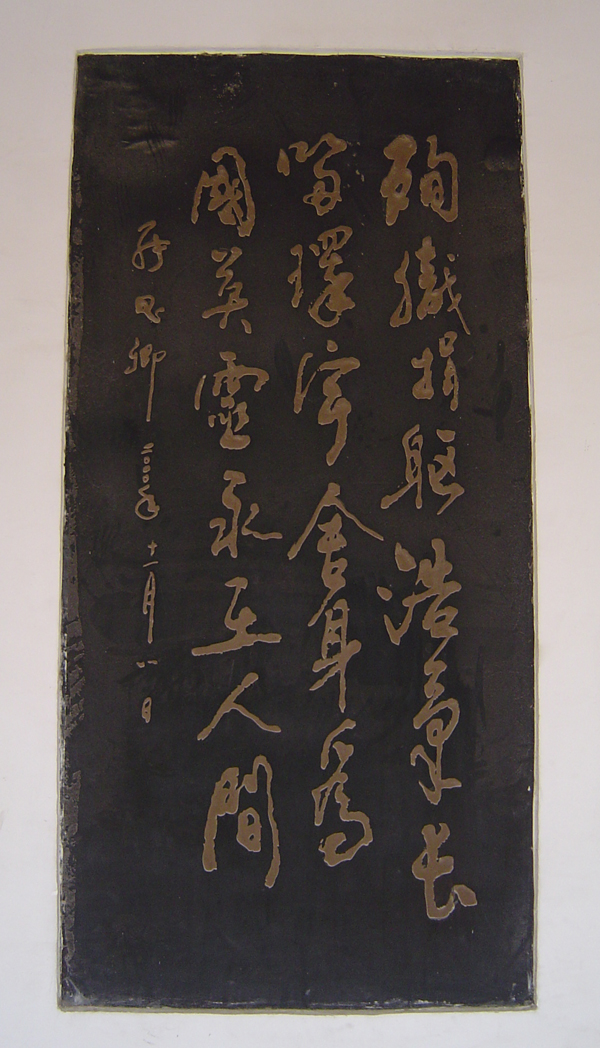 殉職捐軀浩氣長
留環宇舍身爲
國英靈永在人間
卿二〇〇〇年十一月八日